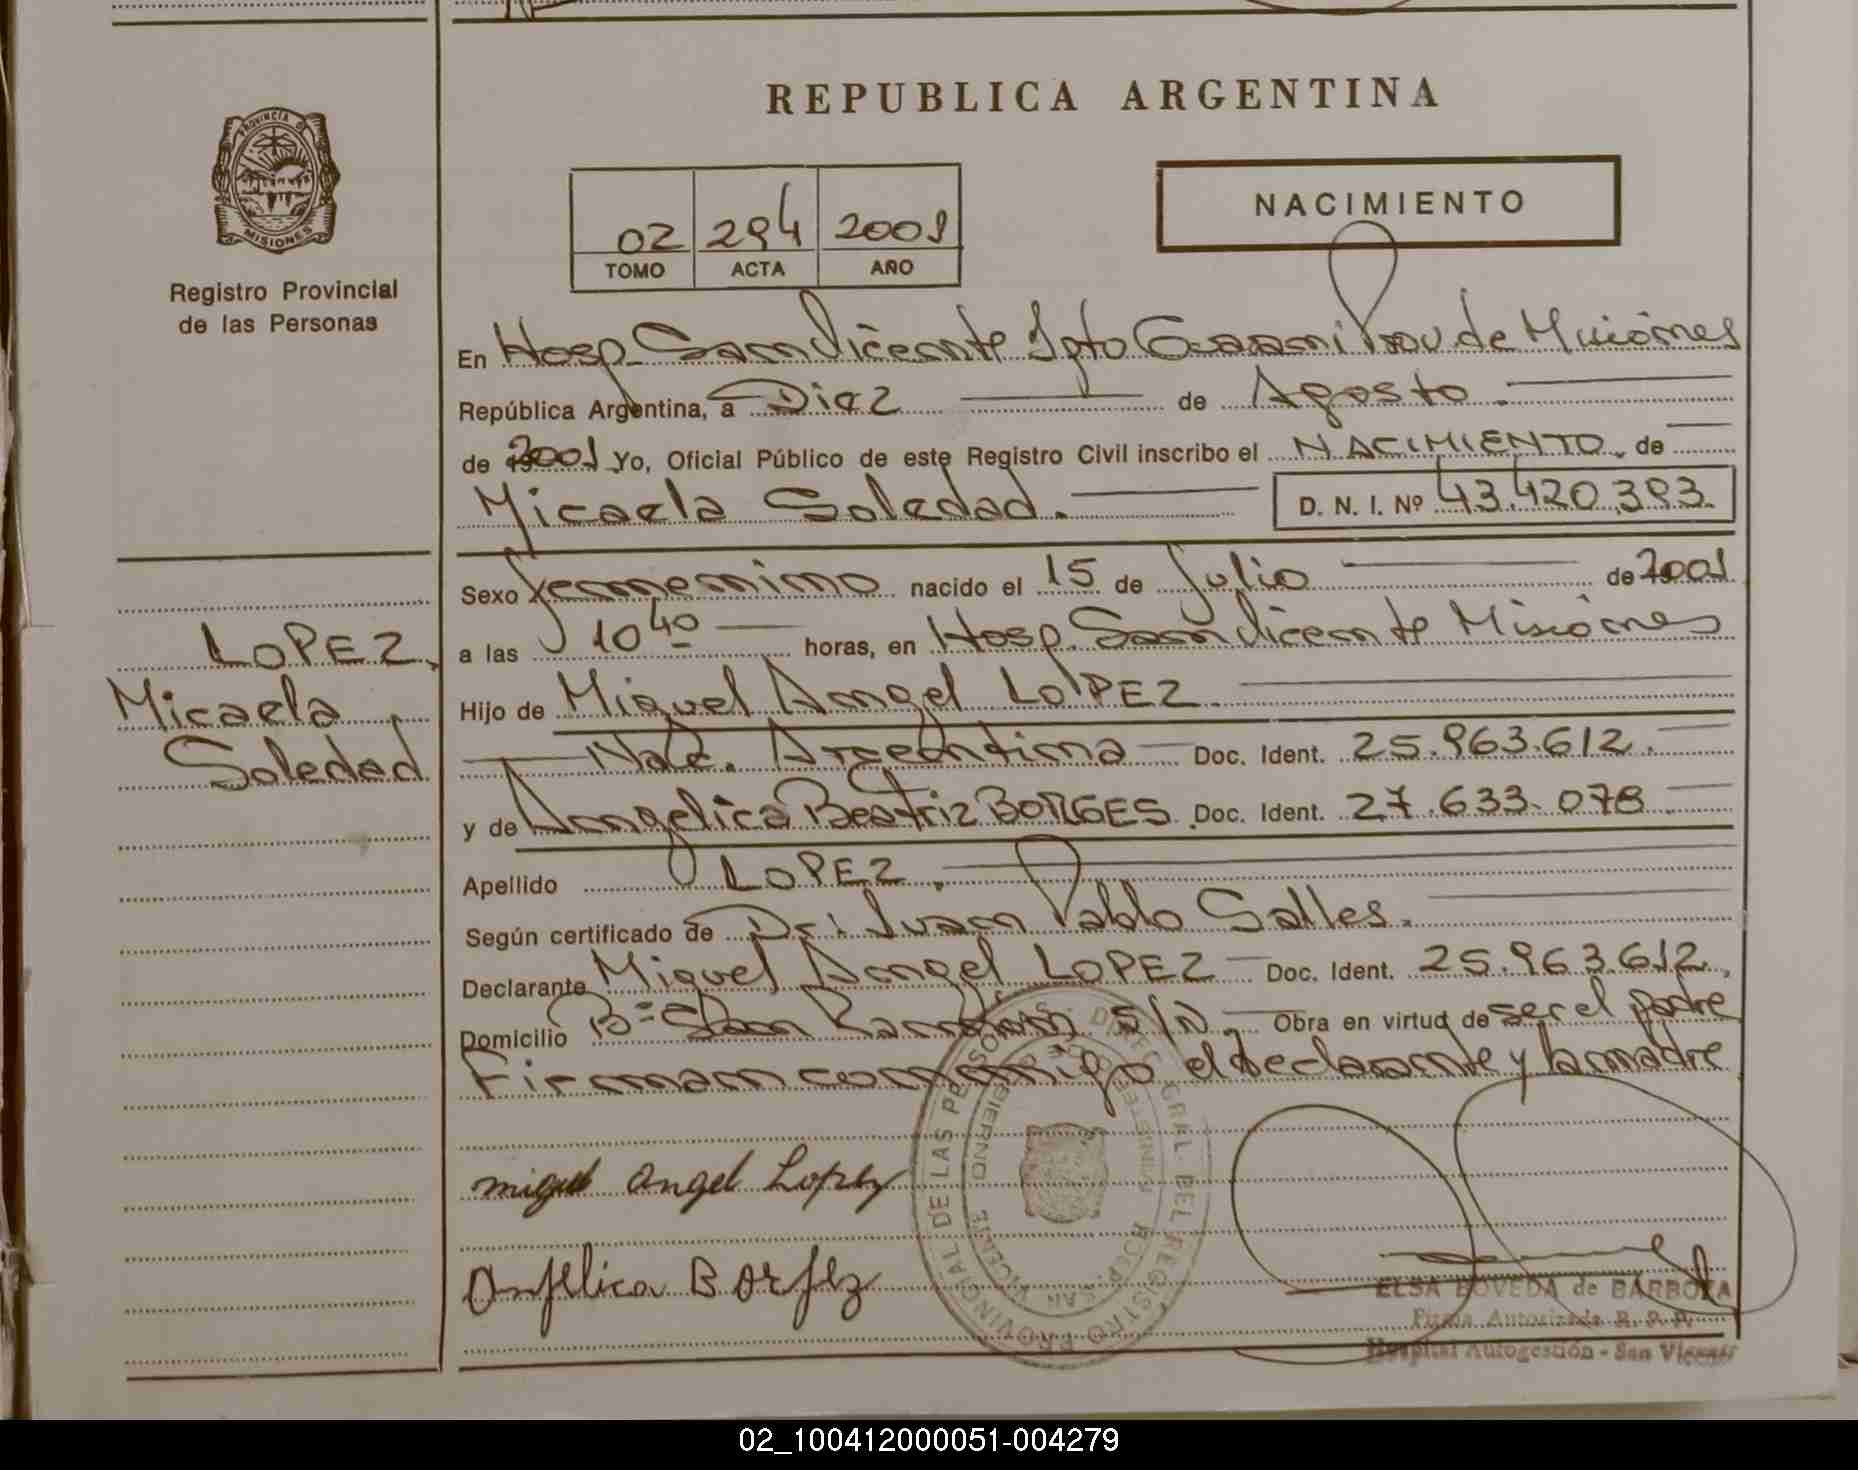 REPUBLICA ARGENTINA
PROVINCIA D
MISIONES
Registro Provincial
de las Personas
02 294 2001
TOMO ACTA AÑO
NACIMIENTO
En Hosp. San Vicente Dpto Guarani Prov. de Misiones
República Argentina, a Diez de Agosto.
de 2001 Yo, Oficial Público de este Registro Civil inscribo el NACIMIENTO. de
Micaela Soledad. D. N. I. Nº 43.420.393.
Sexo Femenino nacido el 15 de Julio de 2001
a las 10 40 horas, en Hosp. San Vicente Misiones
Hijo de Miguel Angel LOPEZ.
Nac. Argentina Doc. Ident. 25.963.612.
y de Angelica Beatriz BORGES. Doc. Ident. 27.633.078
Apellido LOPEZ.
Según certificado de Dr. Juan Pablo Salles.
Declarante Miguel Angel LOPEZ Doc. Ident. 25.963.612,
Domicilio Bº San S/N. Obra en virtud de ser el padre
Firman conmigo el declarante y la madre
LOPEZ,
Micaela
Soledad
miguel angel Lopez
Angelica Borgez
DIREC. GRAL. DEL REGISTRO PROVINCIAL DE LAS PERSONAS
HOSP. SAN VICENTE
ELSA BOVEDA de BARBOZA
Firma Autorizada R. P. P.
Hospital Autogestión - San Vicente
02_100412000051-004279